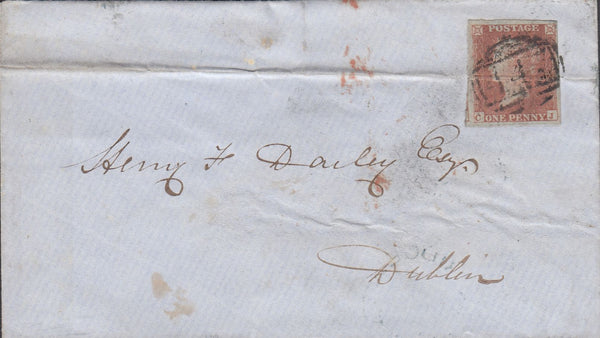 POSTAGE
C ONE PENNY J
Henry F Darley Esq
Dublin